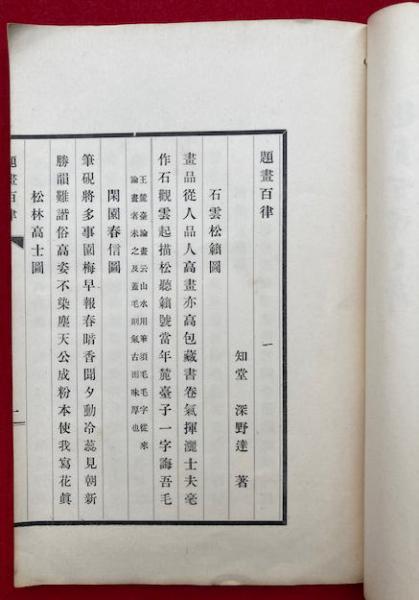 題畫百律
一
知堂 深野達 著
石雲松籟圖
畫品從人品人高畫亦高包藏書卷氣揮灑士夫毫
作石觀雲起描松聽籟號當年麓臺子一字誨吾毛
王麓臺論畫云山水用筆須毛毛字從來
論畫者未之及蓋毛則氣古而味厚也
閑園春信圖
筆硯將多事園梅早報春暗香聞夕動冷蕊見朝新
勝韻難諧俗高姿不染塵天公成粉本使我寫花眞
松林高士圖
題畫百律
一